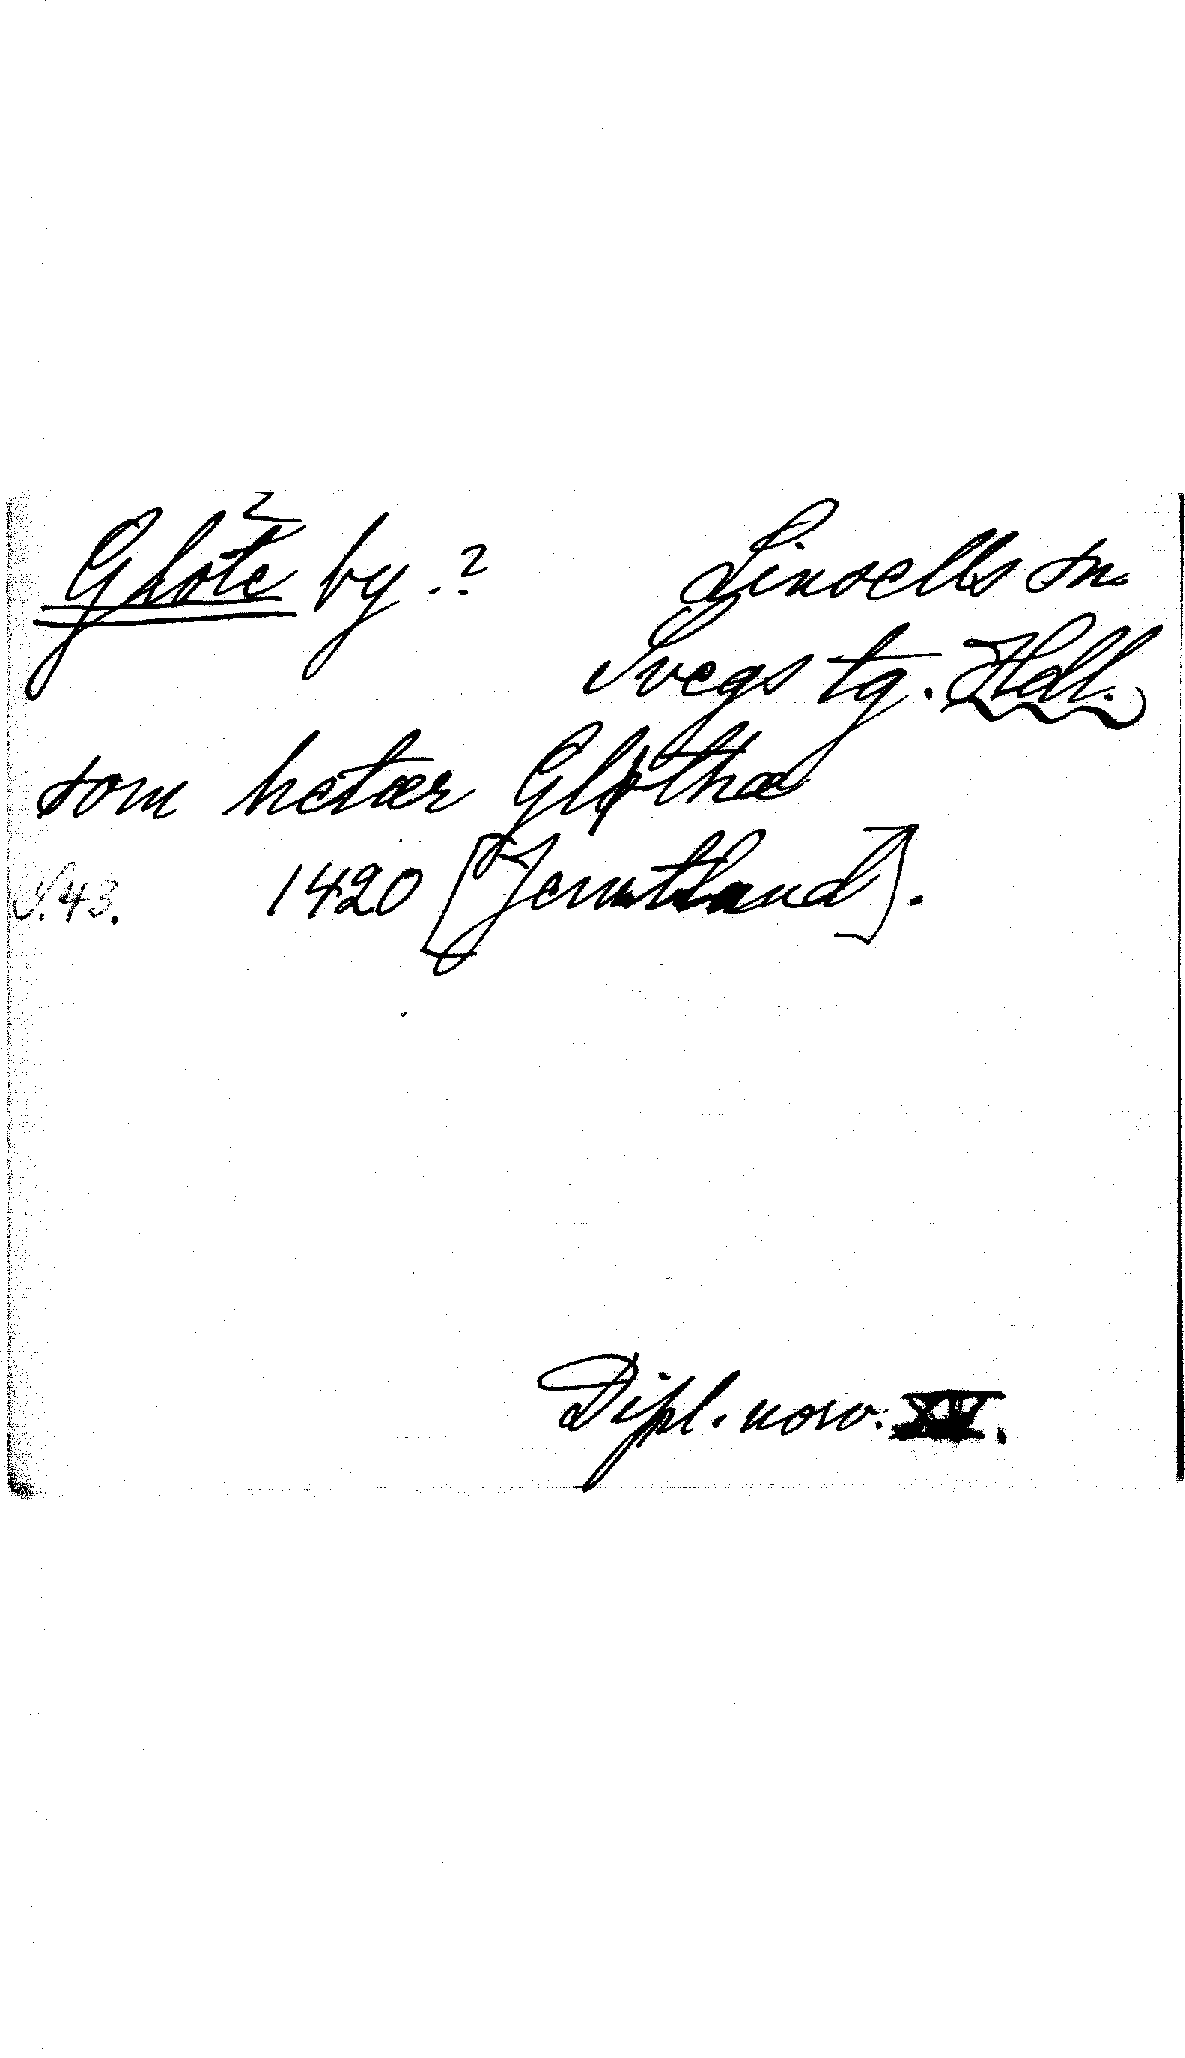 Glöte by.? Linsells sn.
Svegs tg. Hdl.
som hetær Gløthæ
S. 43. 1420 [Jemtland].
Dipl. norv. XIV.